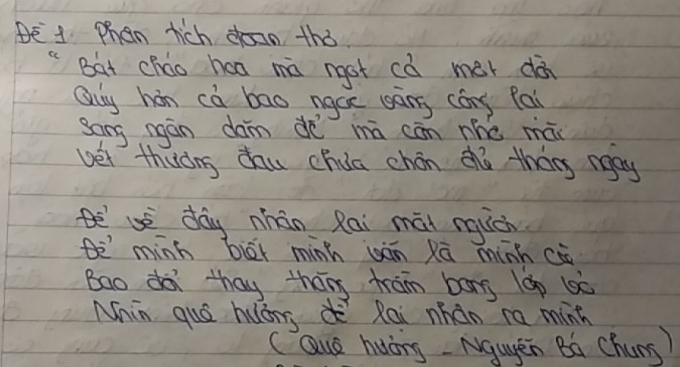 Đề 1. Phân tích đoạn thơ.
" Bát cháo hoa mà ngọt cả một đời
Quý hơn cả bao ngọc vàng cộng lại
Sang ngàn dặm để mà còn nhớ mãi
Vết thương đau chưa chôn đủ tháng ngày
Để về đây nhận lại mặt người
Để mình biết mình vẫn là mình cũ
Bao đổi thay thăng trầm bong lớp vỏ
Nhìn quê hương để lại nhận ra mình
( Quê hương - Nguyễn Bá Chung)